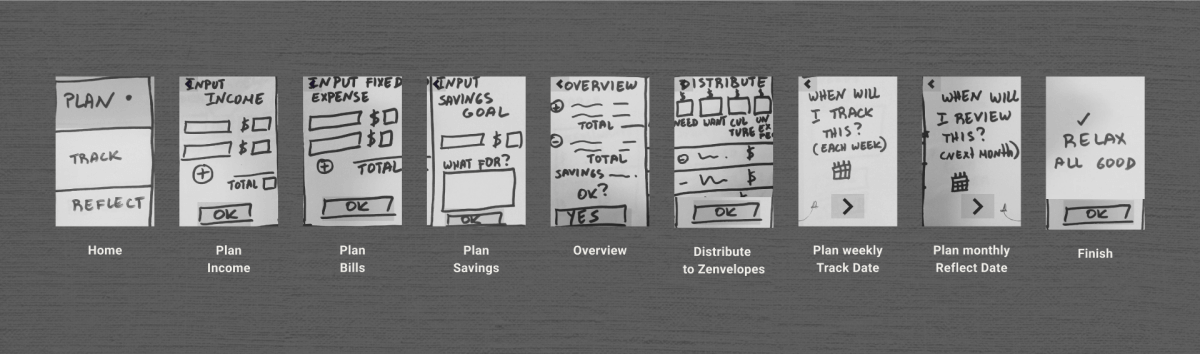 PLAN
TRACK
REFLECT
Home
< INPUT
INCOME
$
$
+
TOTAL
OK
Plan
Income
INPUT FIXED
EXPENSE
$
$
+
TOTAL
OK
Plan
Bills
< INPUT
SAVINGS
GOAL
$
WHAT FOR?
OK
Plan
Savings
< OVERVIEW
+
TOTAL
-
TOTAL
SAVINGS
OK?
YES
Overview
DISTRIBUTE
$ $ $ $
NEED WANT CUL UN
TURE EX
PE
$
- $
OK
Distribute
to Zenvelopes
<
WHEN WILL
I TRACK
THIS?
(EACH WEEK)
>
Plan weekly
Track Date
<
WHEN WILL
I REVIEW
THIS?
(NEXT MONTH)
>
Plan monthly
Reflect Date
✓
RELAX
ALL GOOD
OK
Finish